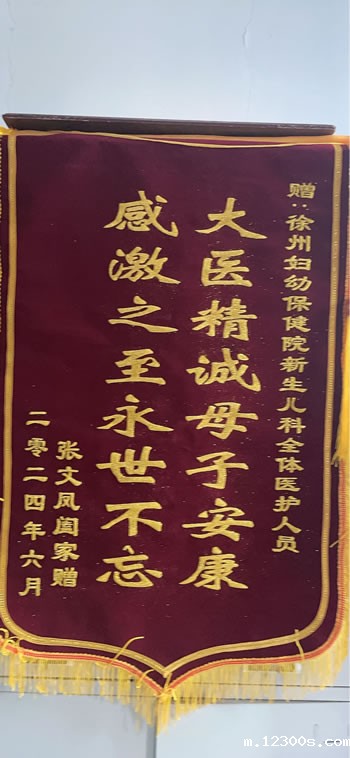 赠:徐州妇幼保健院新生儿科全体医护人员
大医精诚母子安康
感激之至永世不忘
张文凤阖家赠
二零二四年六月
m.12300s.com